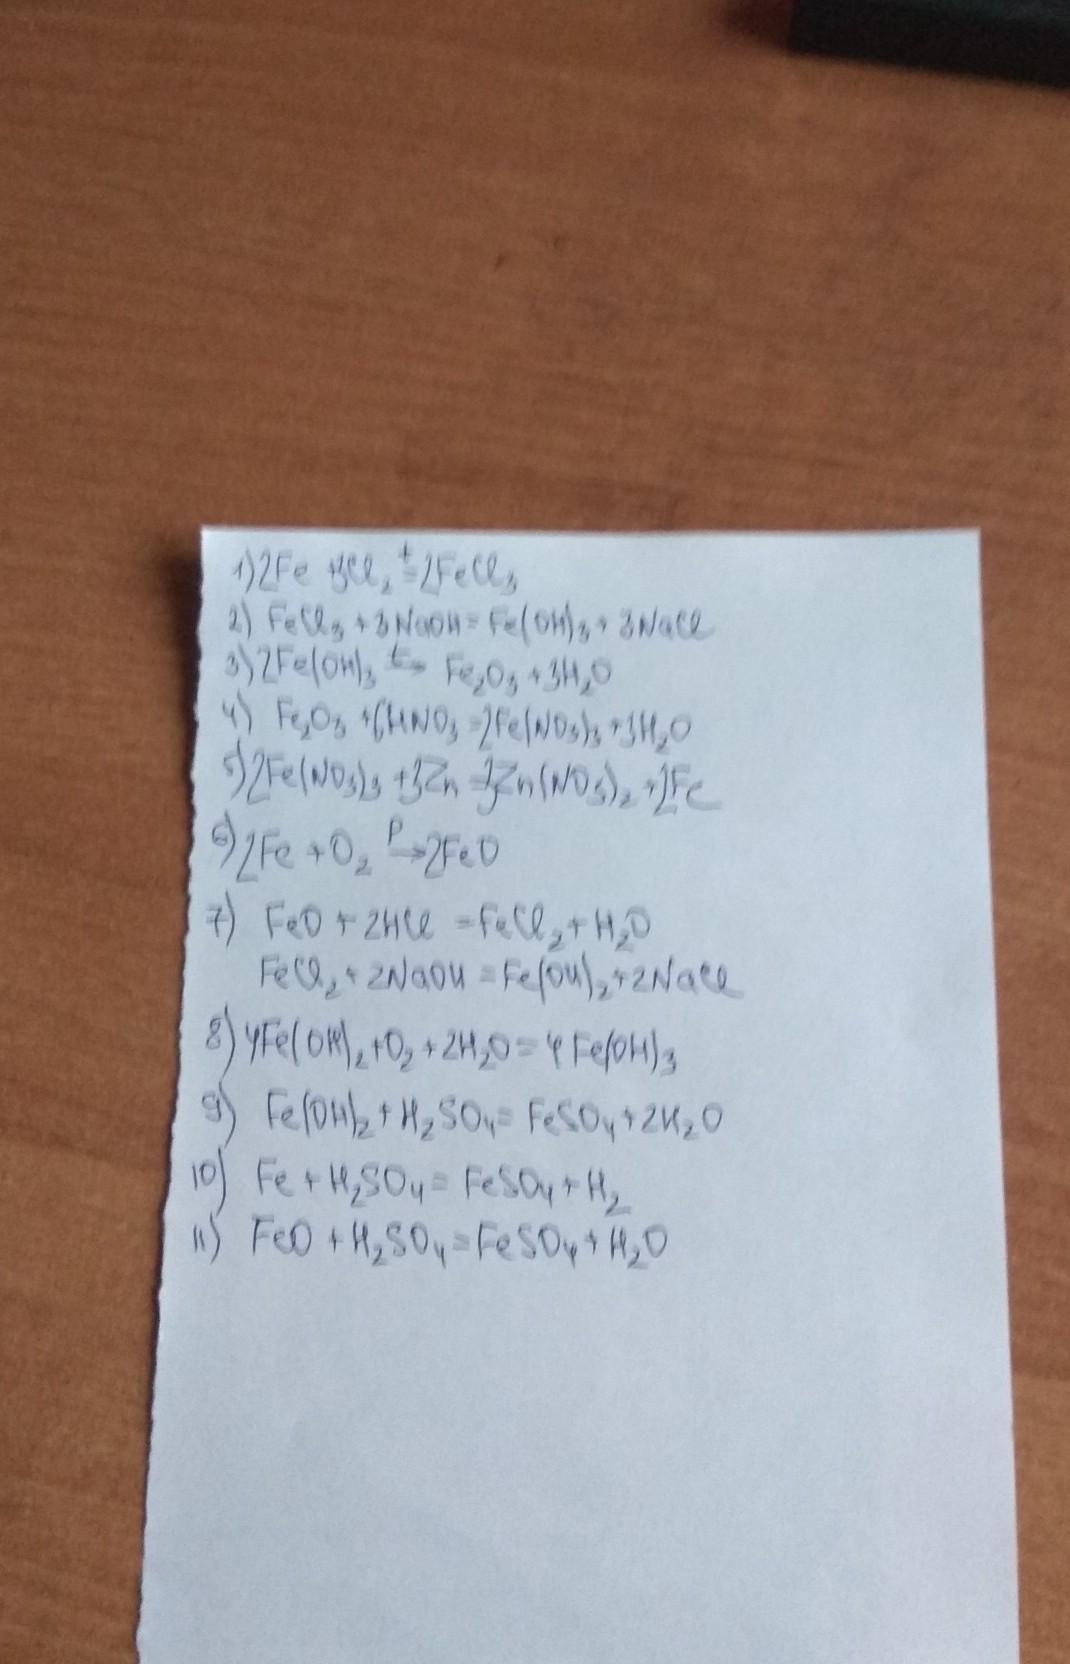 1) 2Fe + 3Cl₂ t= 2FeCl₃
2) FeCl₃ + 3NaOH = Fe(OH)₃ + 3NaCl
3) 2Fe(OH)₃ t→ Fe₂O₃ + 3H₂O
4) Fe₂O₃ + 6HNO₃ = 2Fe(NO₃)₃ + 3H₂O
5) 2Fe(NO₃)₃ + 3Zn = 3Zn(NO₃)₂ + 2Fe
6) 2Fe + O₂ P→ 2FeO
7) FeO + 2HCl = FeCl₂ + H₂O
FeCl₂ + 2NaOH = Fe(OH)₂ + 2NaCl
8) 4Fe(OH)₂ + O₂ + 2H₂O = 4Fe(OH)₃
9) Fe(OH)₂ + H₂SO₄ = FeSO₄ + 2H₂O
10) Fe + H₂SO₄ = FeSO₄ + H₂
11) FeO + H₂SO₄ = FeSO₄ + H₂O